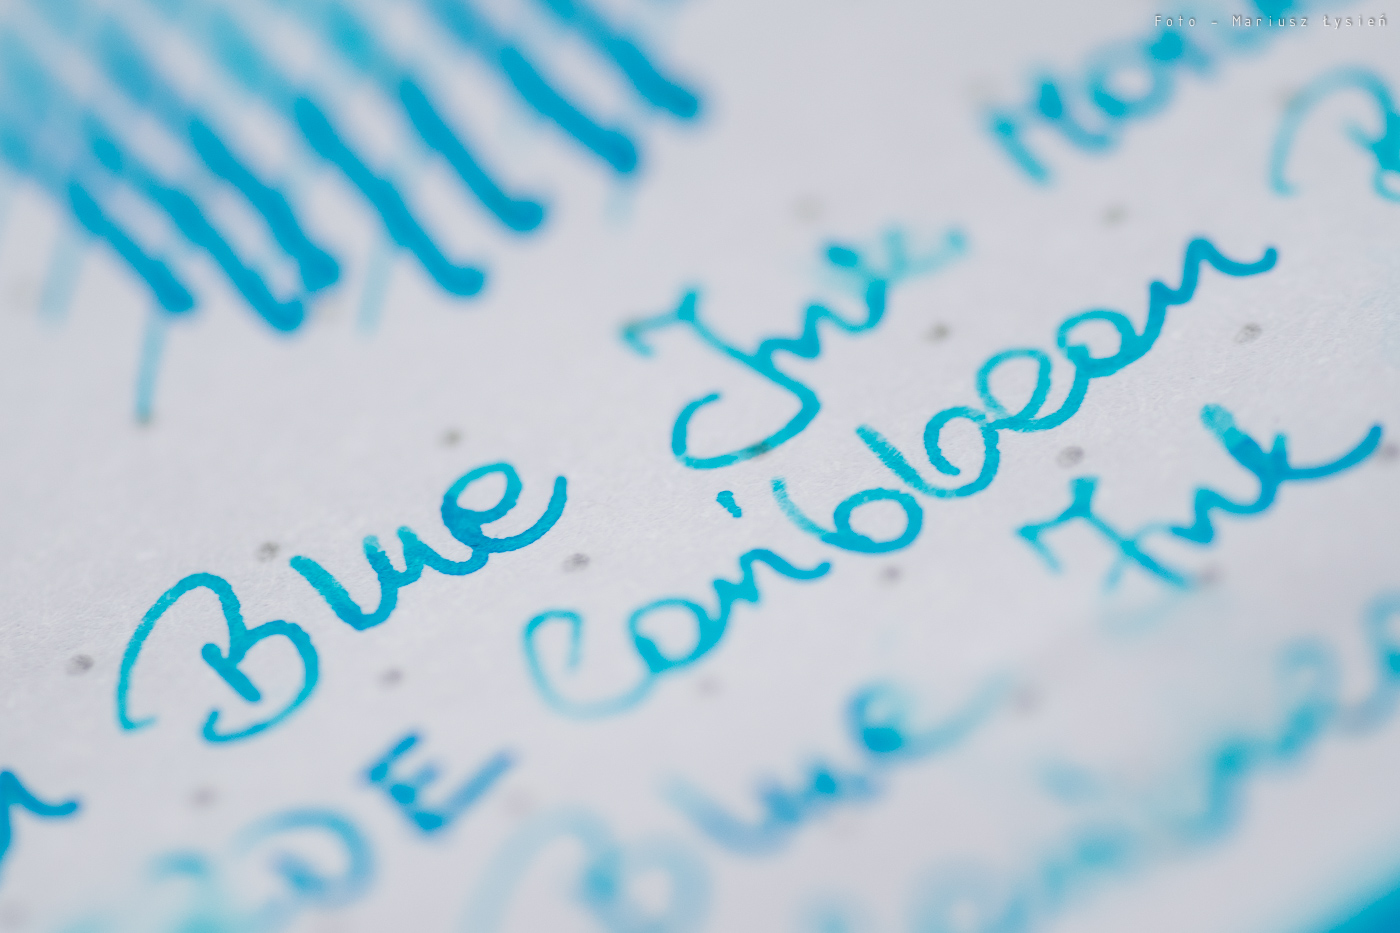 Foto - Mariusz Łysień
Blue Ink
Caribbean
DE
Blue Ink